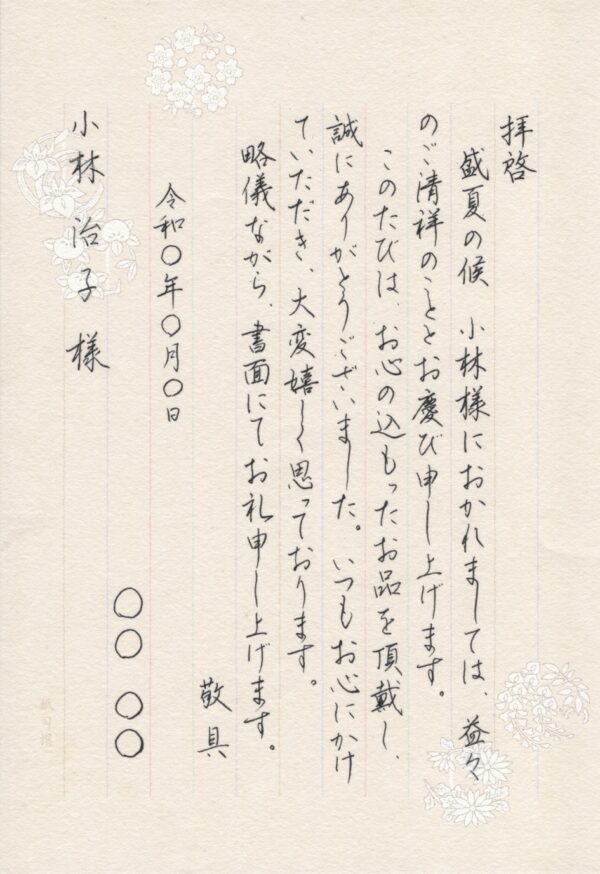 拝啓
盛夏の候　小林様におかれましては、益々
のご清祥のこととお慶び申し上げます。
このたびは、お心の込もったお品を頂戴し、
誠にありがとうございました。いつもお心にかけ
ていただき、大変嬉しく思っております。
略儀ながら、書面にてお礼申し上げます。
敬具
令和〇年〇月〇日
〇〇　〇〇
小林治子様